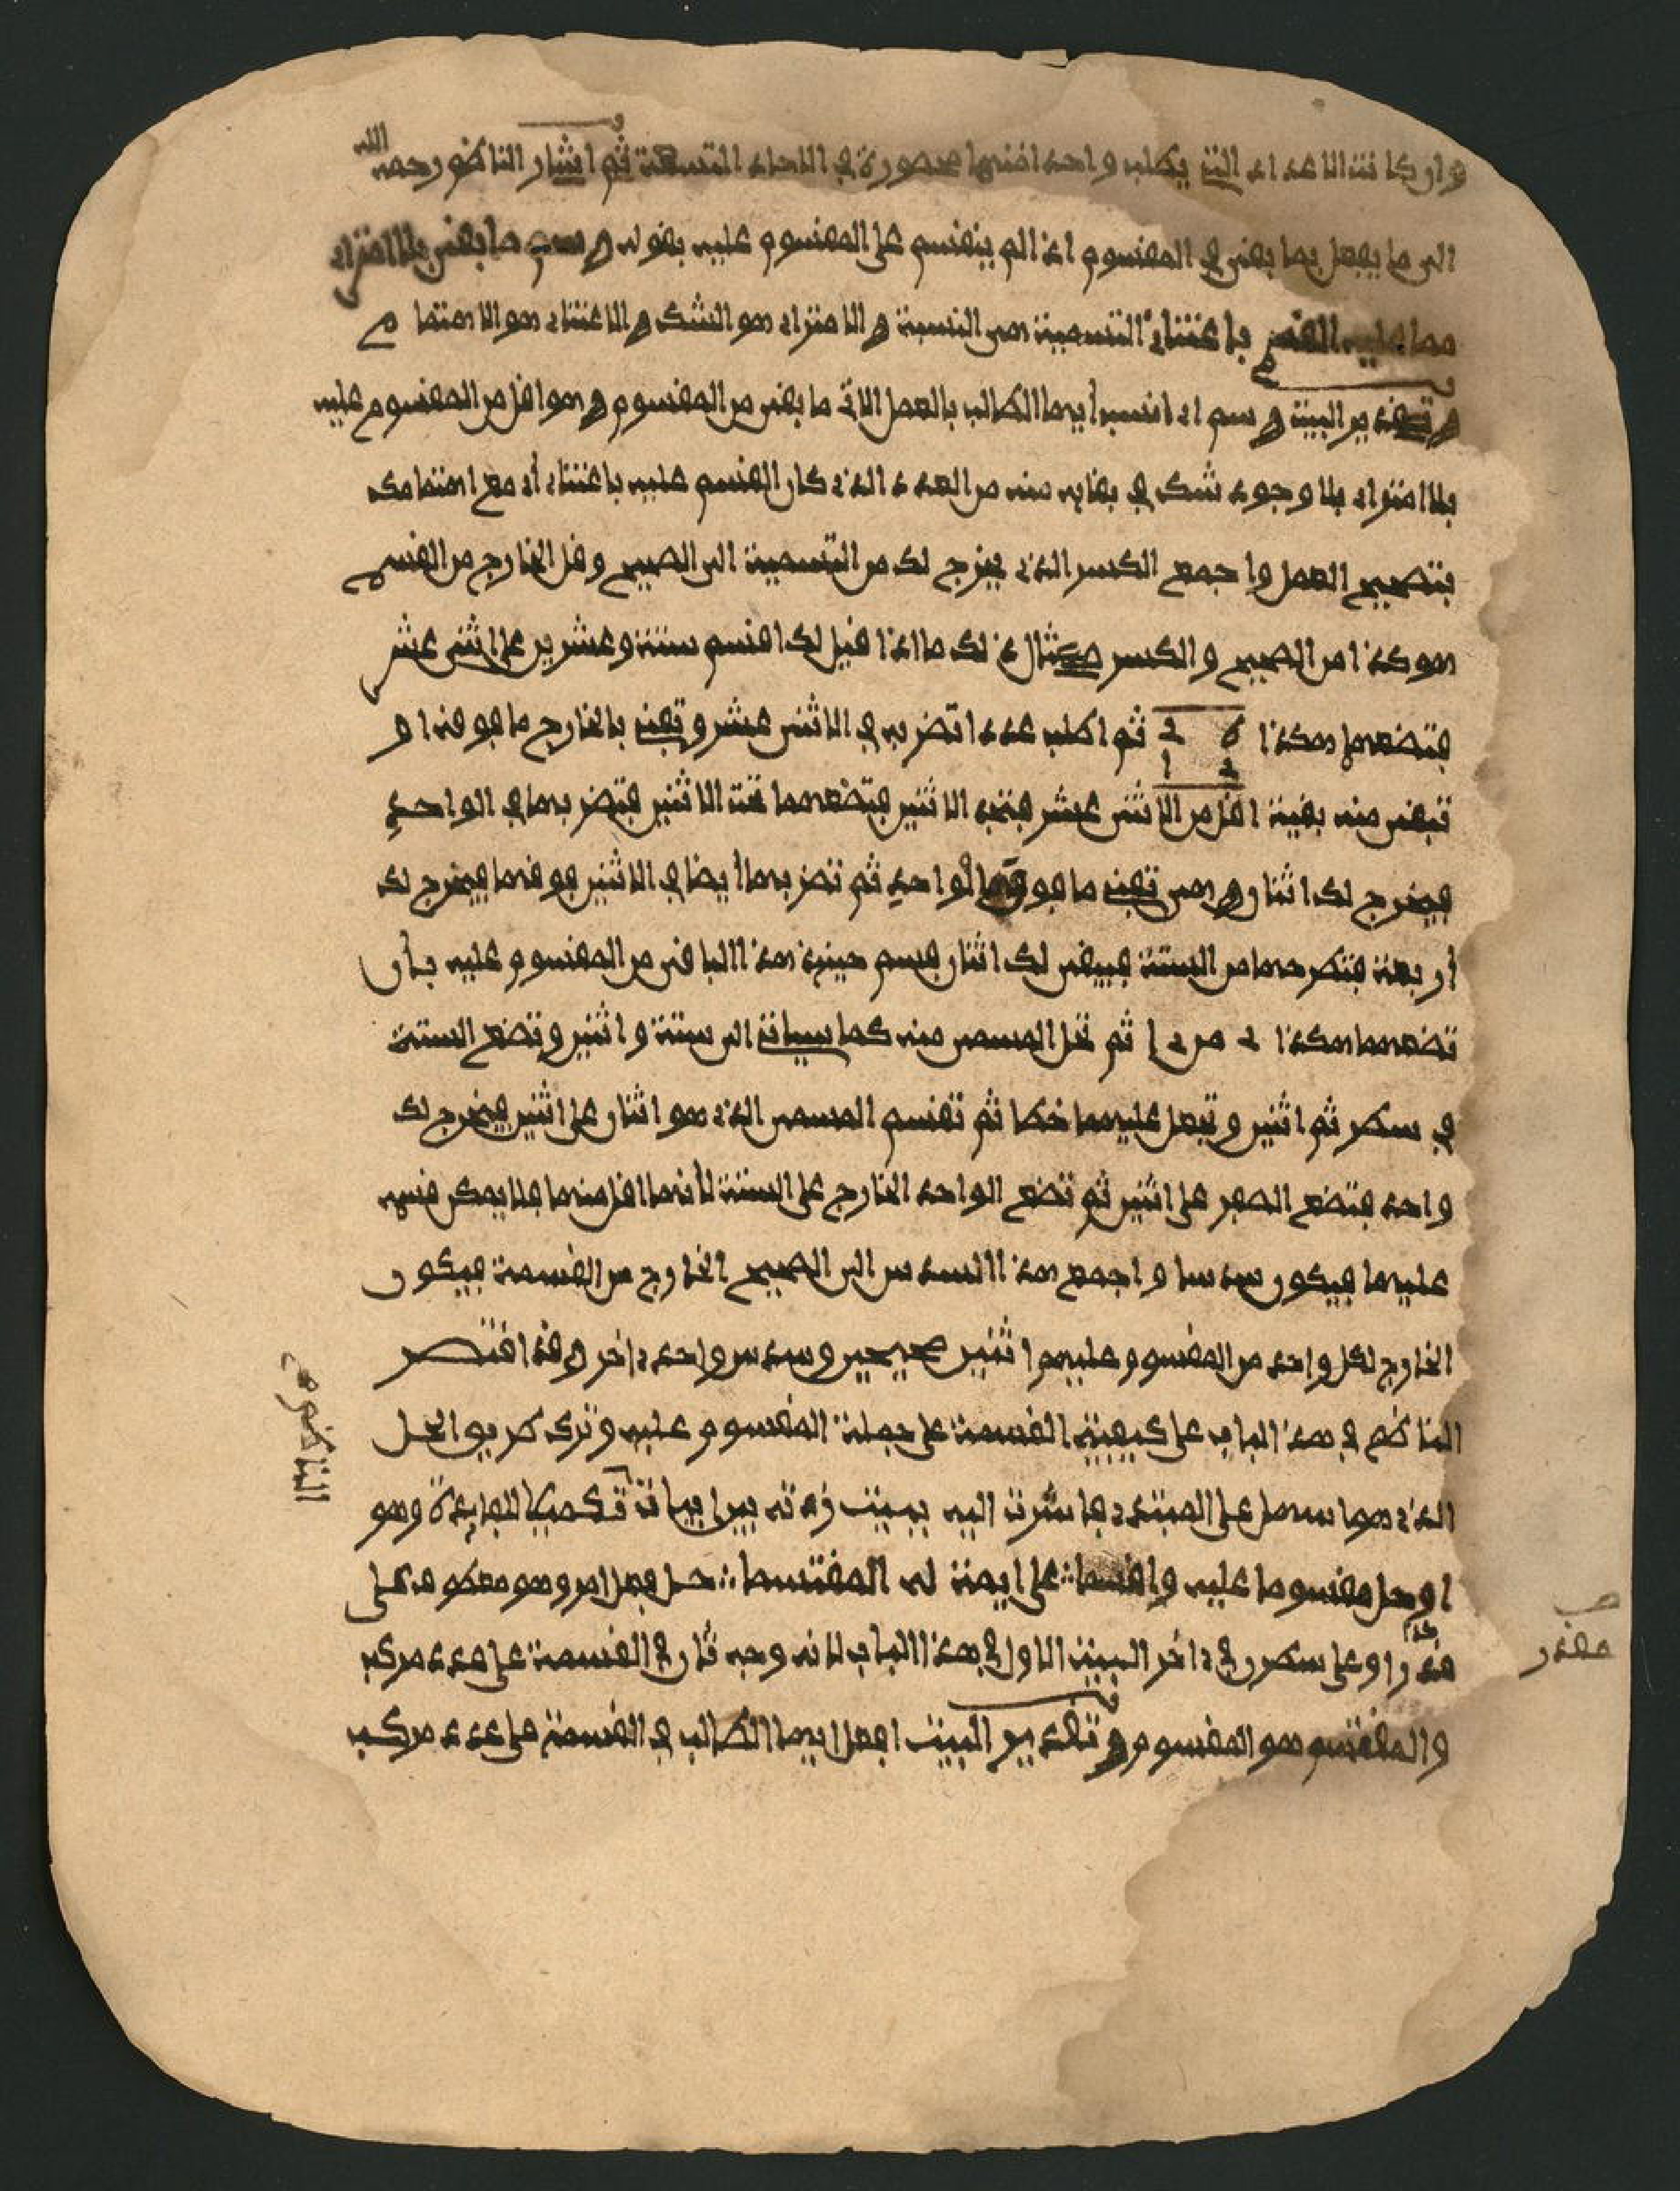 وان كانت الاعداد التي يطلب واحد افنيها محصورة في الاحاد التسعة ثم اشار الناظم رحمه الله
الى ما يفعل بما بقي في المقسوم اذا لم ينقسم على المقسوم عليه بقوله وسم ما بقي بلا امتراء
مما عليه القسم باعتناء التسمية هي النسبة والامتراء هو الشك والاعتناء هو الاهتمام
وتقدير البيت وسم اي انسب أيها الطالب بالعمل الاتي ما بقي من المقسوم وهو اقل من المقسوم عليه
بلا امتراء بلا وجود شك في بقايه منه من العدد الذي كان القسم عليه باعتناء أي مع اهتمامك
بتصحيح العمل واجمع الكسر الذي يخرج لك من التسمية الى الصحيح وقل الخارج من القسم
هو كذا من الصحيح والكسر مثال ذلك ما اذا قيل لك اقسم ستة وعشرين على اثني عشر
فتضعها هكذا ثم اطلب عددا تضربه في الاثني عشر وتفني بالخارج ما فوقه او
تبقى منه بقية اقل من الاثني عشر فتجد الاثنين فتضعهما تحت الاثنين فتضربها في الواحد
فيخرج لك اثنان وهي تفني ما فوق الواحد ثم تضربها أيضا في الاثنين فوقها فيخرج لك
أربعة فتطرحها من الستة فيبقى لك اثنان فسم حينئذ هذا الباقي من المقسوم عليه بأن
تضعهما هكذا ٢ من ٢١ ثم تحل المسمى منه كما سيأتي الى ستة واثنين وتضع الستة
في سطر ثم اثنين وتجعل عليهما خطا ثم تقسم المسمى الذي هو اثنان على اثنين فيخرج لك
واحد فتضع الصفر على اثنين ثم تضع الواحد الخارج على الستة لأنها اقل منها فلا يمكن قسمه
عليها فيكون سدسا واجمع هذا السدس الى الصحيح الخارج من القسمة فيكون
الخارج لكل واحد من المقسوم عليهم اثنين صحيحين وسدس واحد اخر وقد اقتصر
الناظم في هذا الباب على كيفية القسمة على جملة المقسوم عليه وترك طريق الحل
الذي هو اسهل على المبتدي فاشرت اليه ببيت زدته بين ابياته تكميلا للفايدة وهو
او حل مقسوما عليه واقسما على ايمة له المقتسما حل فعل امر وهو معطوف على
قدر او على سطرن في داخر البيت الاول في هذا الباب لانه وجه ثان في القسمة على عدد مركب
والمقتسم هو المقسوم وتقدير البيت افعل ايها الطالب في القسمة على عدد مركب